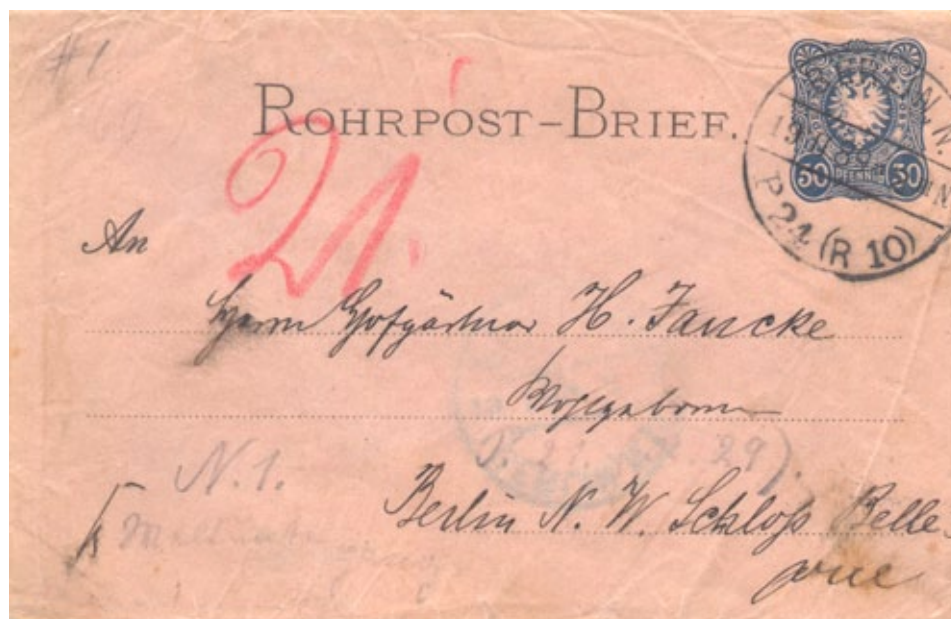 #1
ROHRPOST-BRIEF.
50 PFENNIG 50
P 24 (R 10)
21.
An
Herrn Hofgärtner H. Jancke
Wohlgeboren
N. 1.
Berlin N. W. Schloß Belle-
vue